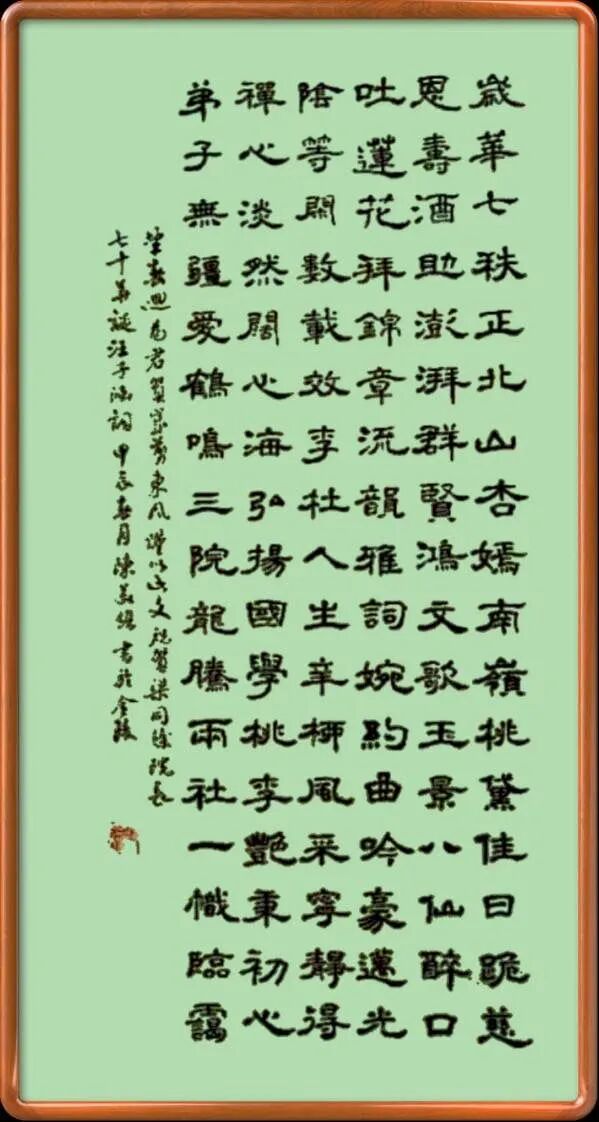 歲華七秩正北山杏嫣南嶺桃黛佳日跪慈
恩壽酒助澎湃群賢鴻文歌玉景八仙醉口
吐蓮花拜錦章流韻雅詞婉約曲吟豪邁光
陰等閑數載效李杜人生辛柳風采寧靜得
禪心淡然闊心海弘揚國學桃李艷秉初心
弟子無疆愛鶴鳴三院龍騰兩社一幟臨靄
為君賀東風謹以此文祝賀梁同院長
七十華誕汪子涵詞甲辰春月陳義書於金陵